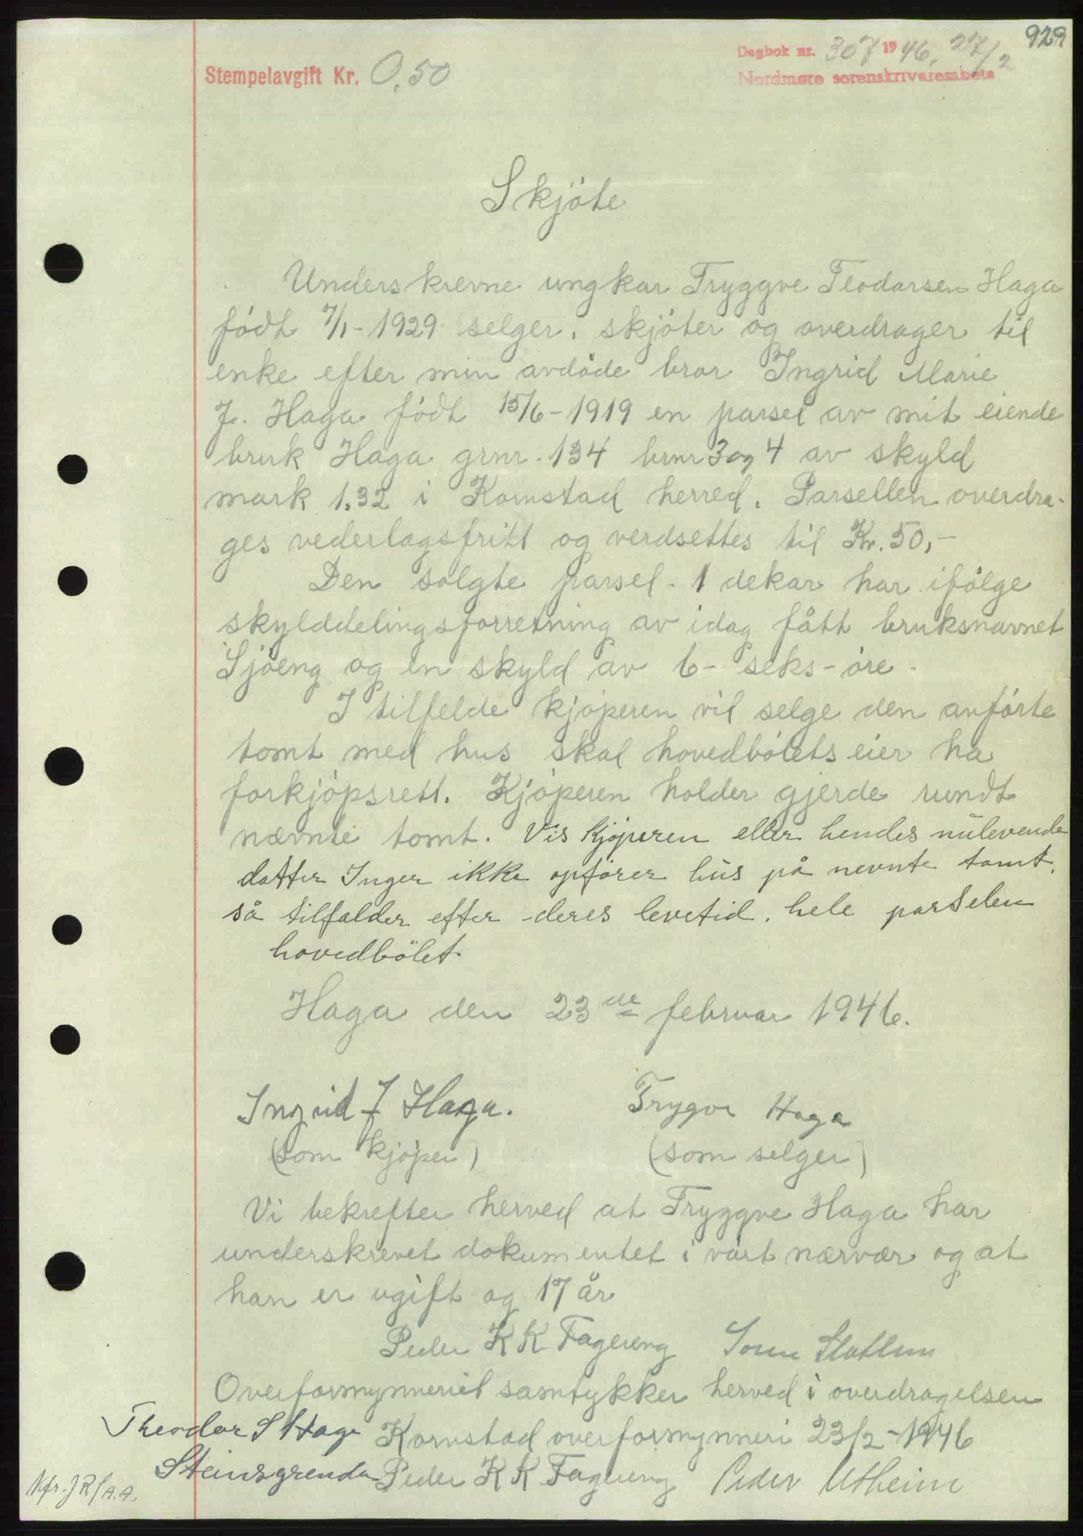 929
Dagbok nr. 307 1946, 27/2
Nordmøre sorenskrivarembete
Stempelavgift Kr. 0,50
Skjöte
Underskrevne ungkar Tryggve Teodorsen Haga
født 7/1-1929 selger, skjöter og overdrager til
enke efter min avdöde bror Ingrid Marie
J. Haga født 15/6-1919 en parsel av mit eiende
bruk Haga grnr. 134 brnr 3 og 4 av skyld
mark 1.32 i Kornstad herred. Parsellen overdra-
ges vederlagsfritt og verdsettes til Kr. 50,-
Den solgte parsel - 1 dekar har ifölge
skylddelingsforretning av idag fått bruksnavnet
Sjöeng og en skyld av 6- seks-öre.
I tilfelde kjöperen vil selge den anförte
tomt med hus skal hovedbölets eier ha
forkjöpsrett. Kjöperen holder gjerde rundt
nævnte tomt. Vis Kjöperen eller hendes nülevende
datter Inger ikke opförer hüs på nevnte tomt,
så tilfalder efter deres levetid, hele parselen
hovedbölet.
Haga den 23de februar 1946.
Ingrid J Haga. Trygve Haga
(som kjöper) (som selger)
Vi bekrefter herved at Tryggve Haga har
underskrevet dokumentet i vårt nærvær og at
han er ugift og 17 år
Peder K K Fagereng
Overformynneriet samtykker herved i overdragelsen
Theodor S Haga Kornstad overformynneri 23/2-1946
Steinsgrenda Peder K K Fagereng Peder Utheim
Kfr. JR/A.A.